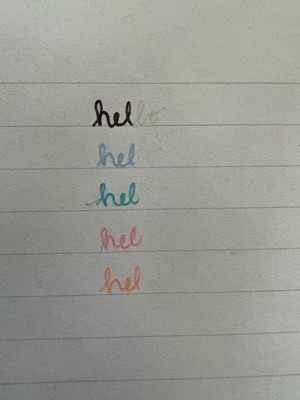 hello
hel
hel
hel
hel